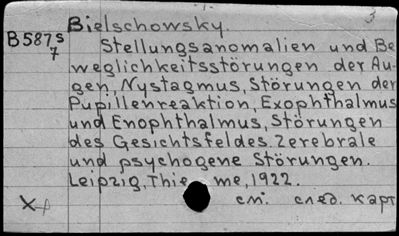 3
Bielschowsky.
B587s
7
Stellungsanomalien und Be
weglichkeitsstörungen der Au-
gen, Nystagmus, Störungen der
Pupillenreaktion, Exophthalmus
und Enophthalmus, Störungen
des Gesichtsfeldes. Zerebrale
und psychogene Störungen.
Leipzig, Thieme, 1922.
см. след. карт